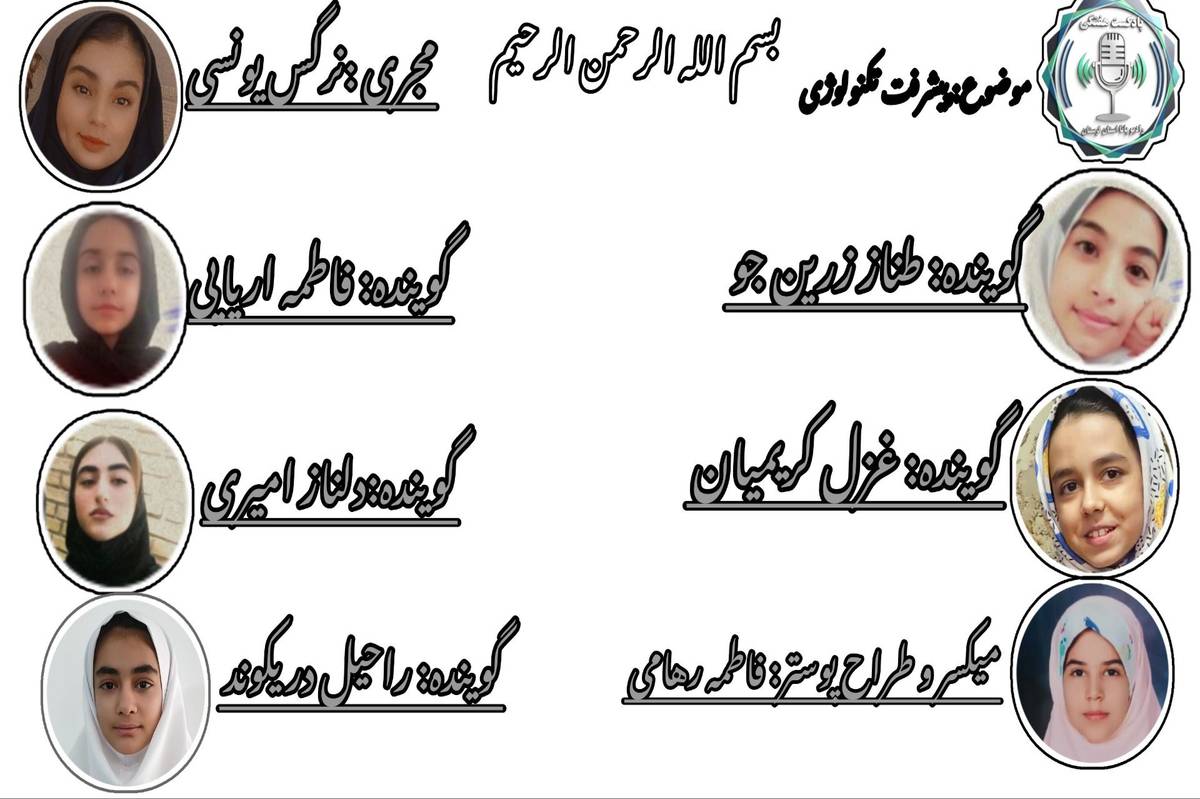 پادکست هشتگی
رادیو پانا استان لرستان
بسم الله الرحمن الرحیم
موضوع:پیشرفت تکنولوژی
مجری :نرگس یونسی
گوینده: طناز زرین جو
گوینده: فاطمه اریایی
گوینده: غزل کریمیان
گوینده:دلناز امیری
میکسر و طراح پوستر: فاطمه رهامی
گوینده: راحیل دریکوند